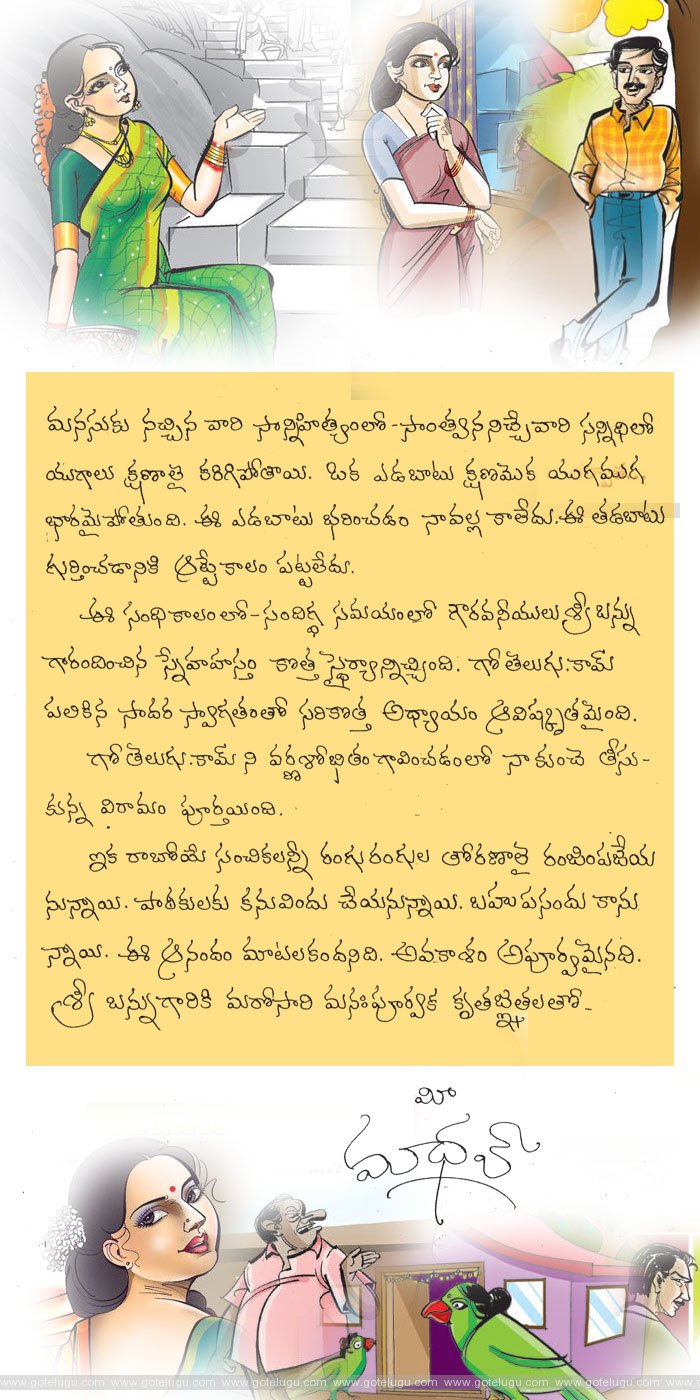 మనసుకు నచ్చిన వారి సాన్నిహిత్యంలో-సాంత్వననిచ్చేవారి సన్నిధిలో
యుగాలు క్షణాలై కరిగిపోతాయి. ఒక ఎడబాటు క్షణమొక యుగమై
భారమైపోతుంది. ఈ ఎడబాటు భరించడం నావల్ల కాలేదు.ఈ తడబాటు
గుర్తించడానికి ఆట్టేకాలం పట్టలేదు.
ఈ సంధికాలంలో-సందిగ్ధ సమయంలో గౌరవనీయులు శ్రీ బన్ను
గారందించిన స్నేహహస్తం కొత్త స్థైర్యాన్నిచ్చింది. గోతెలుగు.కామ్
పలికిన సాదర స్వాగతంతో సరికొత్త అధ్యాయం ఆవిష్కృతమైంది.
గోతెలుగు.కామ్ ని వర్ణశోభితం గావించడంలో నా కుంచె తీసు-
కున్న విరామం పూర్తయింది.
ఇక రాబోయే సంచికలన్నీ రంగురంగుల తోరణాలై రంజింపజేయ
నున్నాయి. పాఠకులకు కనువిందు చేయనున్నాయి. బహుపసందు కాను
న్నాయి. ఈ ఆనందం మాటలకందనిది. అవకాశం అపూర్వమైనది.
శ్రీ బన్నుగారికి మరోసారి మనఃపూర్వక కృతజ్ఞతలతో-
మీ
మాధవ్
www.gotelugu.com www.gotelugu.com www.gotelugu.com www.gotelugu.com www.gotelugu.com www.gotelugu.com